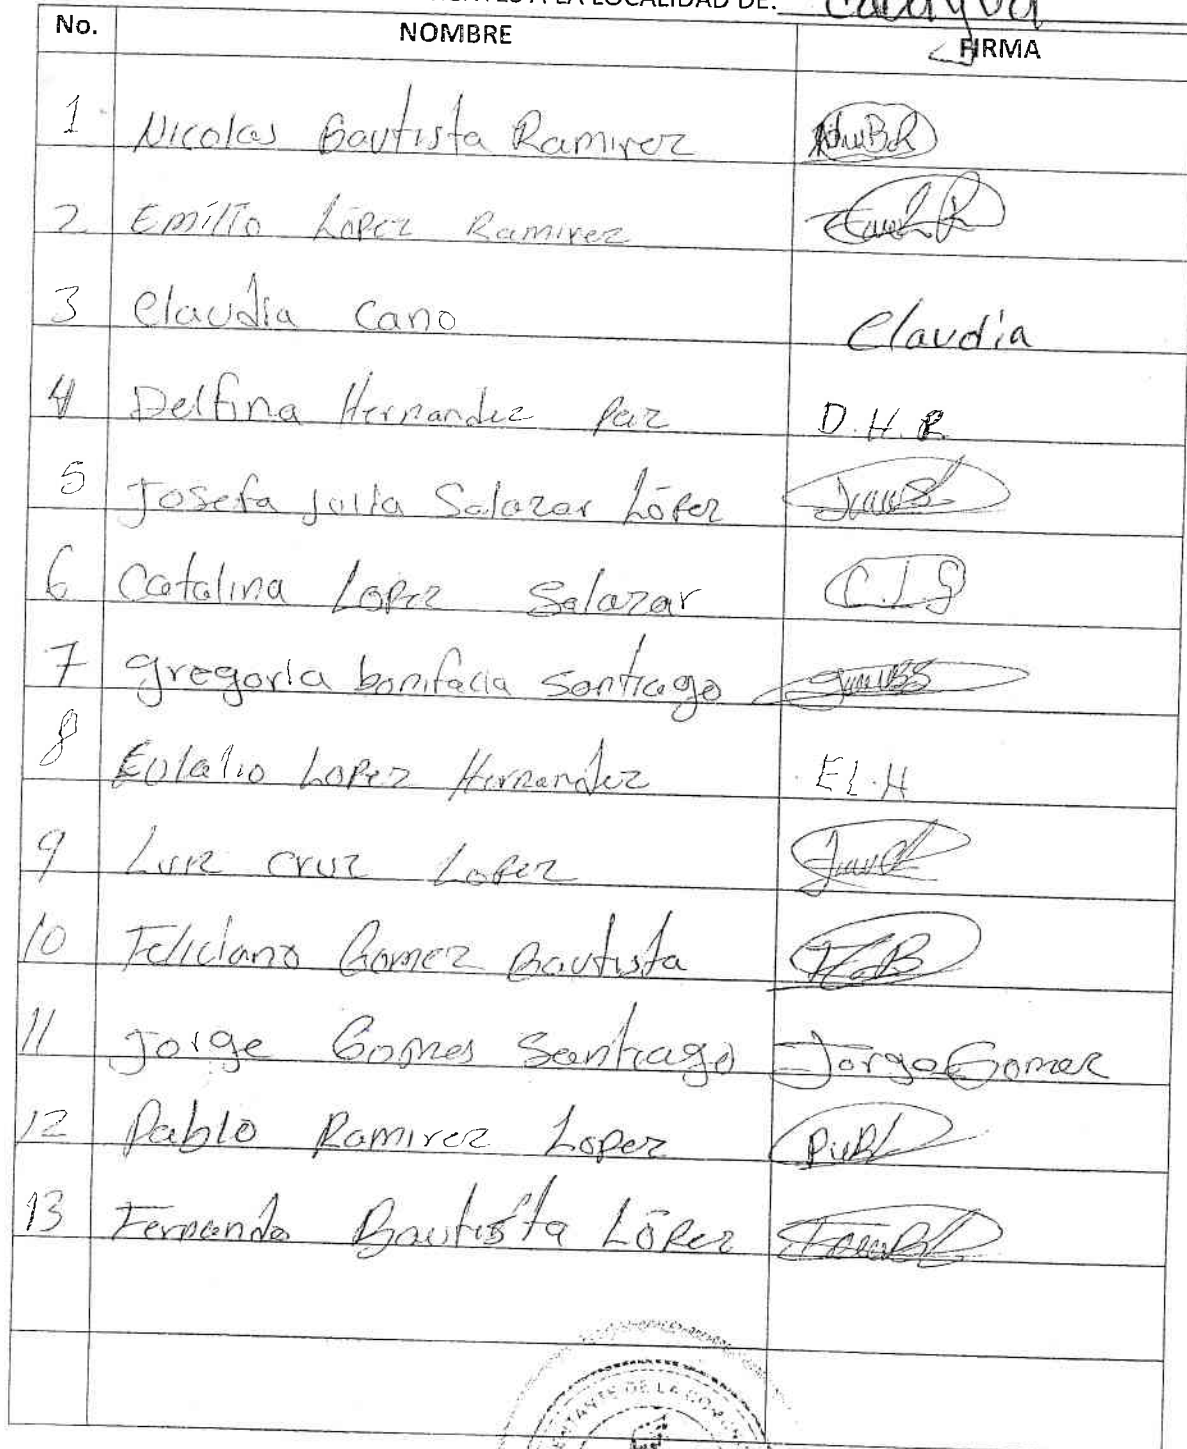 A LA LOCALIDAD DE:
No. NOMBRE FIRMA
1 Nicolas Bautista Ramirez
2 Emilio López Ramirez
3 Claudia Cano Claudia
4 Delfina Hernandez Paz D.H.R
5 Josefa Julia Salazar López
6 Catalina Lopez Salazar C.L.S
7 gregoria bonifacia Santiago
8 Eulalio Lopez Hernandez E L. H
9 Luiz cruz Lopez
10 Feliciano Gomez Bautista
11 Jorge Gomes Santiago Jorge Gomez
12 Pablo Ramirez Lopez
13 Fernando Bautista López
TANTE DE LA COMUN